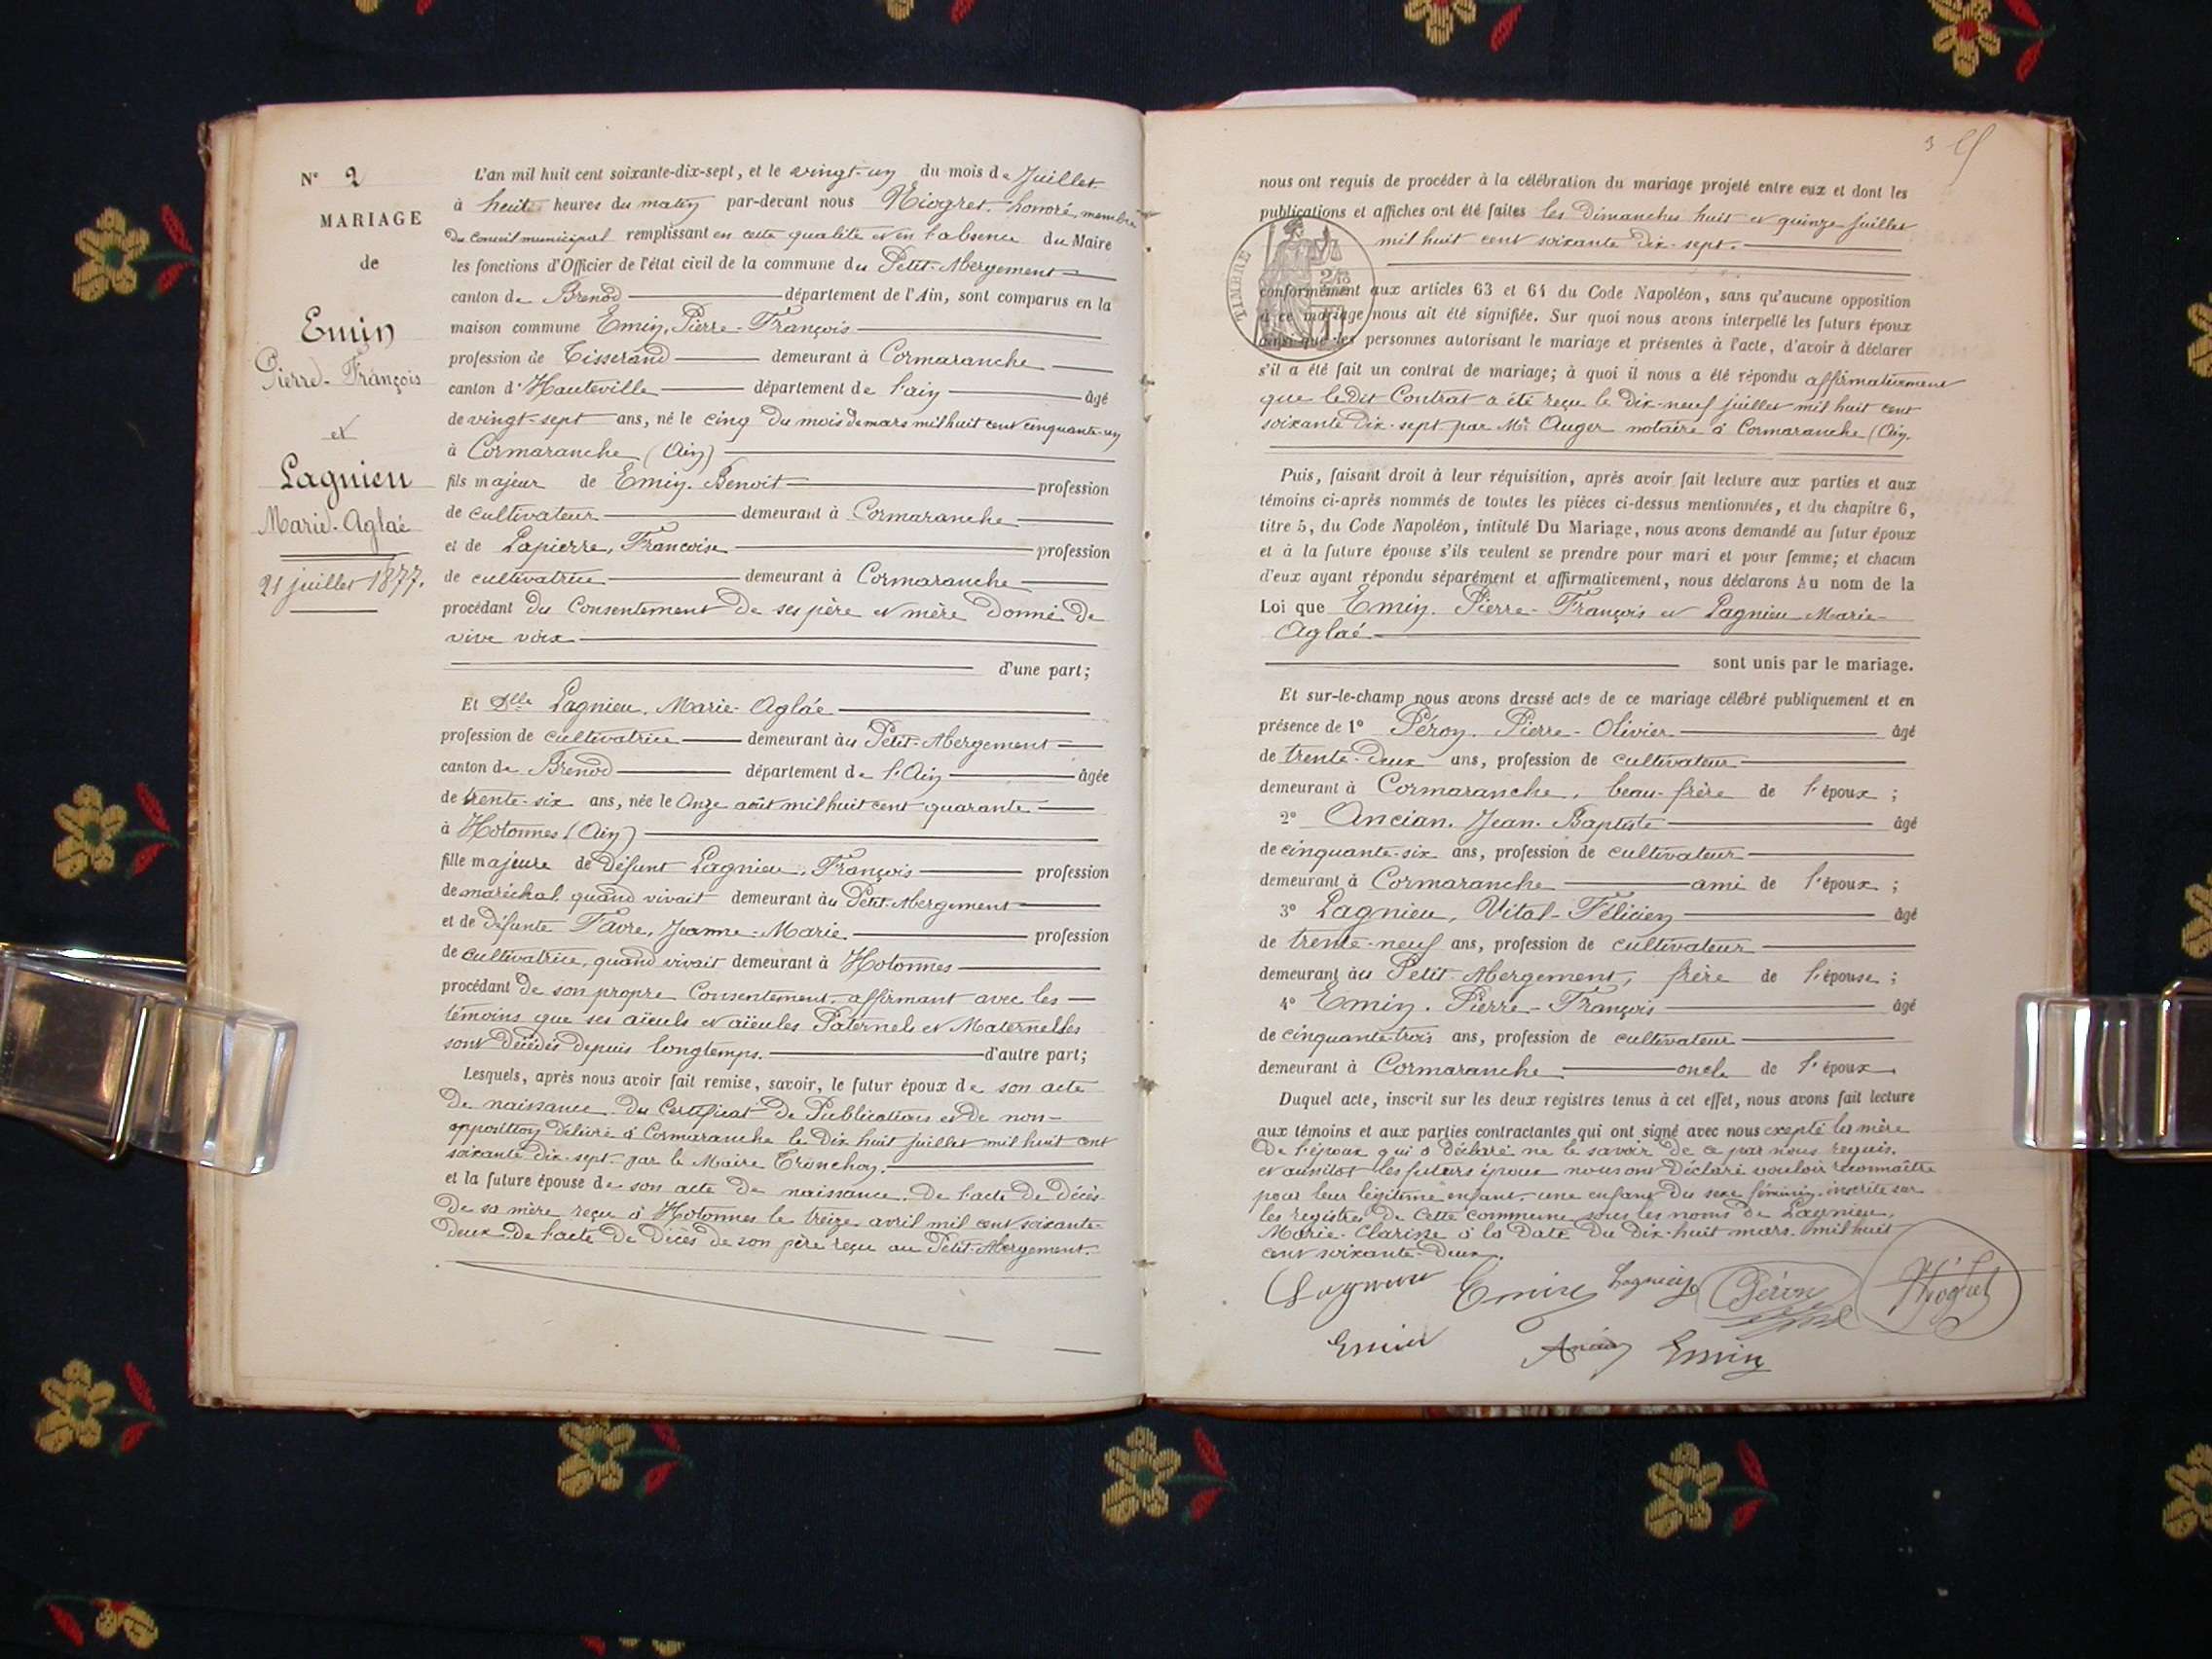 N° 2
MARIAGE
de
Emin
Pierre-François
et
Lagnieu
Marie-Aglaé
21 juillet 1877.
L'an mil huit cent soixante-dix-sept, et le vingt-un du mois de Juillet
à huit heures du matin par-devant nous Niogret honoré, membre
du Conseil municipal remplissant en cette qualité et en l'absence du Maire
les fonctions d'Officier de l'état civil de la commune du Petit-Abergement
canton de Brenod département de l'Ain, sont comparus en la
maison commune Emin, Pierre-François
profession de Tisserand demeurant à Cormaranche
canton d'Hauteville département de l'ain âgé
de vingt-sept ans, né le cinq du mois de mars mil huit cent cinquante-un
à Cormaranche (Ain)
fils majeur de Emin. Benoit profession
de cultivateur demeurant à Cormaranche
et de Lapierre, Francoise profession
de cultivatrice demeurant à Cormaranche
procédant du Consentement de ses père et mère donné de
vive voix
d'une part;
Et Dlle Lagnieu. Marie-Aglaé
profession de cultivatrice demeurant au Petit-Abergement
canton de Brenod département de l'Ain âgée
de trente-six ans, née le Onze août mil huit cent quarante
à Hotonnes (Ain)
fille majeure de défunt Lagnieu, François profession
de maréchal quand vivait demeurant au Petit-Abergement
et de défunte Favre, Jeanne-Marie profession
de cultivatrice, quand vivait demeurant à Hotonnes
procédant de son propre Consentement. affirmant avec les
témoins que ses aïeuls et aïeules Paternels et Maternelles
sont décédés depuis longtemps. d'autre part;
Lesquels, après nous avoir fait remise, savoir, le futur époux de son acte
de naissance du Certificat de Publications et de non-
opposition délivré à Cormaranche le dix huit juillet mil huit cent
soixante dix-sept par le Maire Tronchon.
et la future épouse de son acte de naissance. de l'acte de décès
de sa mère reçu à Hotonnes le treize avril mil cent soixante-
deux. de l'acte de décès de son père reçu au Petit-Abergement.
3
nous ont requis de procéder à la célébration du mariage projeté entre eux et dont les
publications et affiches ont été faites les dimanches huit et quinze juillet
mil huit cent soixante dix-sept.
TIMBRE
conformément aux articles 63 et 64 du Code Napoléon, sans qu'aucune opposition
à ce mariage nous ait été signifiée. Sur quoi nous avons interpellé les futurs époux
ainsi que les personnes autorisant le mariage et présentes à l'acte, d'avoir à déclarer
s'il a été fait un contrat de mariage; à quoi il nous a été répondu affirmativement
que ledit Contrat a été reçu le dix-neuf juillet mil huit cent
soixante dix-sept par Mr Auger notaire à Cormaranche (Ain.
Puis, faisant droit à leur réquisition, après avoir fait lecture aux parties et aux
témoins ci-après nommés de toutes les pièces ci-dessus mentionnées, et du chapitre 6,
titre 5, du Code Napoléon, intitulé Du Mariage, nous avons demandé au futur époux
et à la future épouse s'ils veulent se prendre pour mari et pour femme; et chacun
d'eux ayant répondu séparément et affirmativement, nous déclarons Au nom de la
Loi que Emin. Pierre-François et Lagnieu Marie-
Aglaé
sont unis par le mariage.
Et sur-le-champ nous avons dressé acte de ce mariage célébré publiquement et en
présence de 1° Péron. Pierre-Olivier âgé
de trente-deux ans, profession de cultivateur
demeurant à Cormaranche, beau-frère de l'époux ;
2° Ancian. Jean-Baptiste âgé
de cinquante-six ans, profession de cultivateur
demeurant à Cormaranche ami de l'époux ;
3° Lagnieu, Vital-Félicien âgé
de trente-neuf ans, profession de cultivateur
demeurant au Petit-Abergement, frère de l'épouse ;
4° Emin. Pierre-François âgé
de cinquante-trois ans, profession de cultivateur
demeurant à Cormaranche oncle de l'époux.
Duquel acte, inscrit sur les deux registres tenus à cet effet, nous avons fait lecture
aux témoins et aux parties contractantes qui ont signé avec nous excepté la mère
de l'époux qui a déclaré ne le savoir de ce par nous requis.
et aussitot les futurs époux nous ont déclaré vouloir reconnaître
pour leur légitime enfant, une enfant du sexe féminin. inscrite sur
les registres de cette commune sous les noms de Lagnieu,
Marie-Clarisse à la date du dix-huit mars mil huit
cent soixante-deux.
Lagnieu Emin Lagnieu Péron Niogret
Emin Ancian Emin